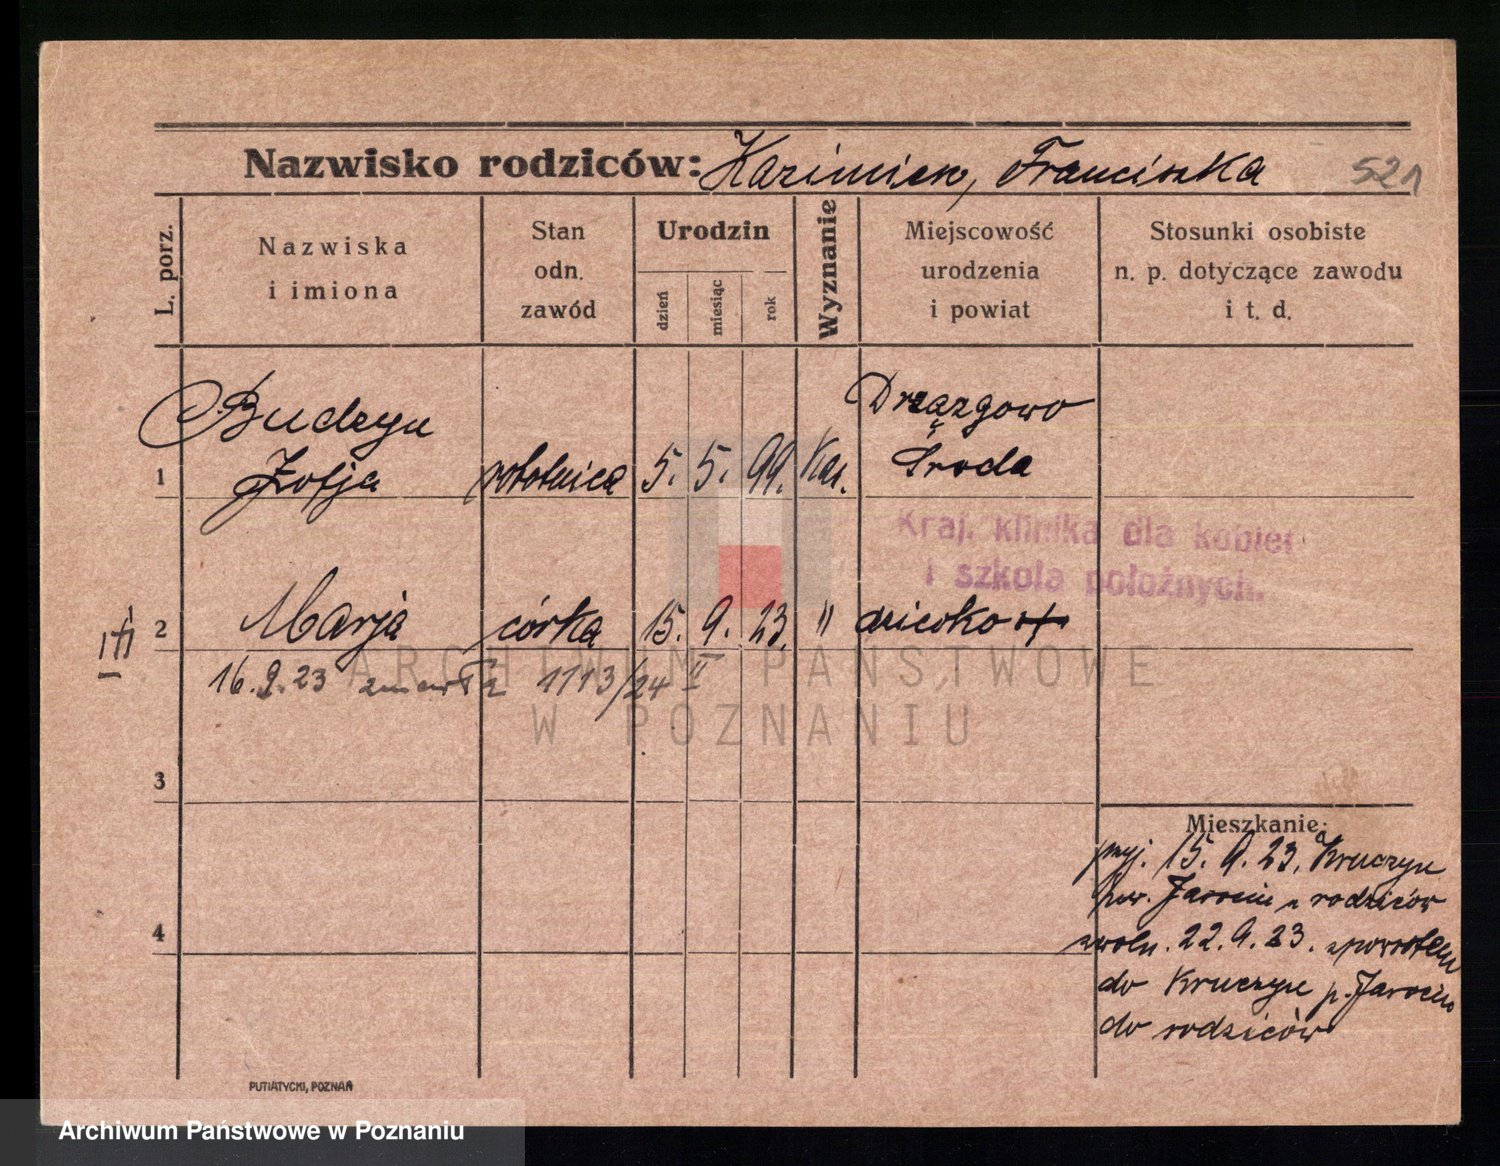 Nazwisko rodziców: Kazimierz, Franciszka 521
L. porz.
Nazwiska
i imiona
Stan
odn.
zawód
Urodzin
dzień
miesiąc
rok
Wyznanie
Miejscowość
urodzenia
i powiat
Stosunki osobiste
n. p. dotyczące zawodu
i t. d.
Budzyń
Drzązgowo
1 Zofja robotnica 5. 5. 99. kat. Środa
Kraj. klinika dla kobiet
i szkoła położnych.
2 Marja córka 15. 9. 23. " dziecko
16.9.23 zmarła 1113/24 II
ARCHIWUM PAŃSTWOWE
W POZNANIU
3
Mieszkanie:
15. 9. 23. Kruczyn
pow. Jarocin u rodziców
4
zwoln. 22. 9. 23. zpowrotem
do Kruczyn p. Jarocin
do rodziców
PUTIATYCKI, POZNAŃ
Archiwum Państwowe w Poznaniu